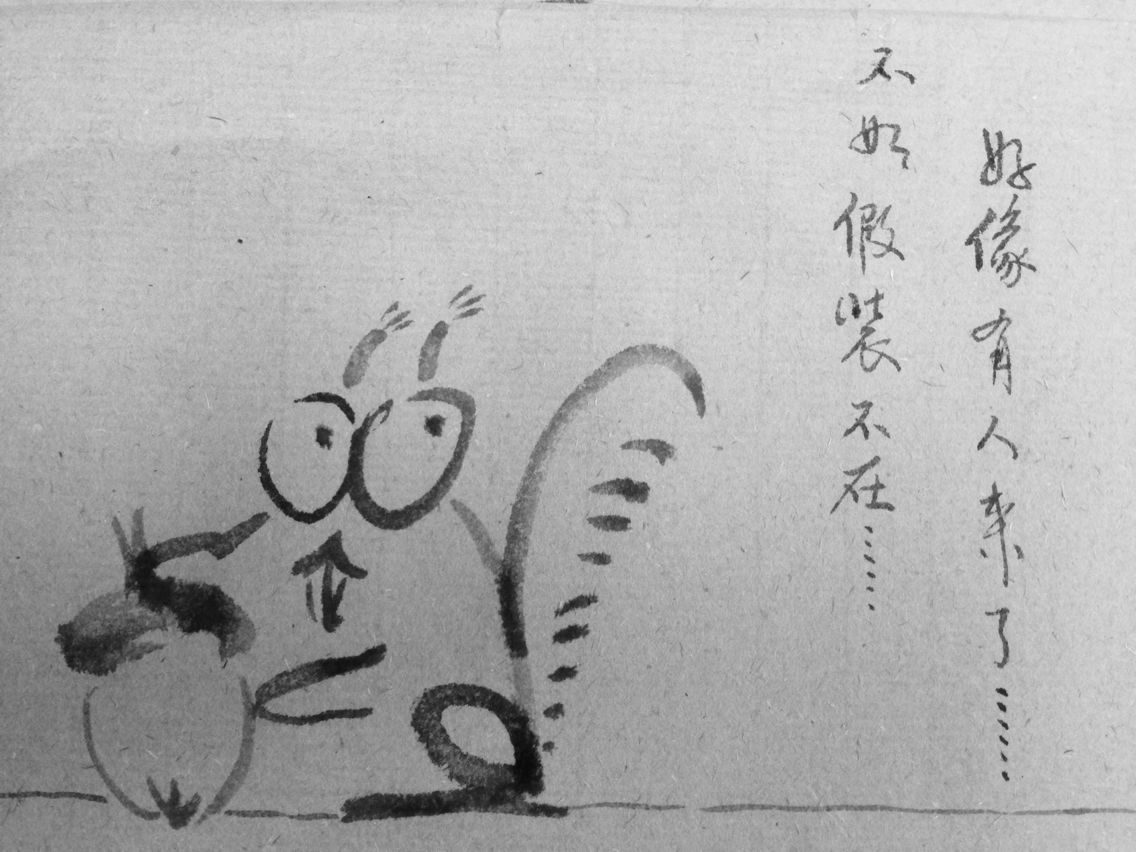 好像有人来了……
不如假裝不在……